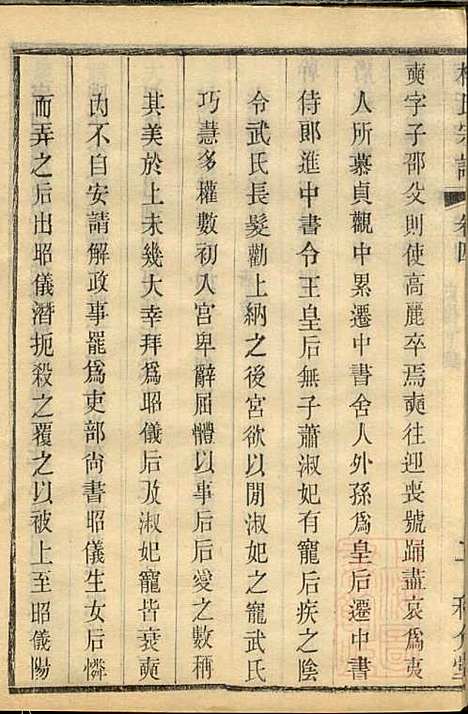 柳氏宗譜 卷四
奭字子邵父則使高麗卒焉奭往迎喪號踊盡哀爲夷
人所慕貞觀中累遷中書舍人外孫爲皇后遷中書
侍郎進中書令王皇后無子蕭淑妃有寵后疾之陰
令武氏長髮勸上納之後宮欲以閒淑妃之寵武氏
巧慧多權數初入宮卑辭屈體以事后后愛之數稱
其美於上未幾大幸拜爲昭儀后及淑妃寵皆衰奭
內不自安請解政事罷爲吏部尚書昭儀生女后憐
而弄之后出昭儀潛扼殺之覆之以被上至昭儀陽